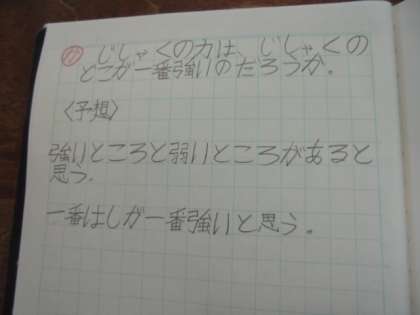 カ じしゃくの力は、じしゃくの
どこが一番強いのだろうか。
〈予想〉
強いところと弱いところがあると
思う。
一番はしが一番強いと思う。